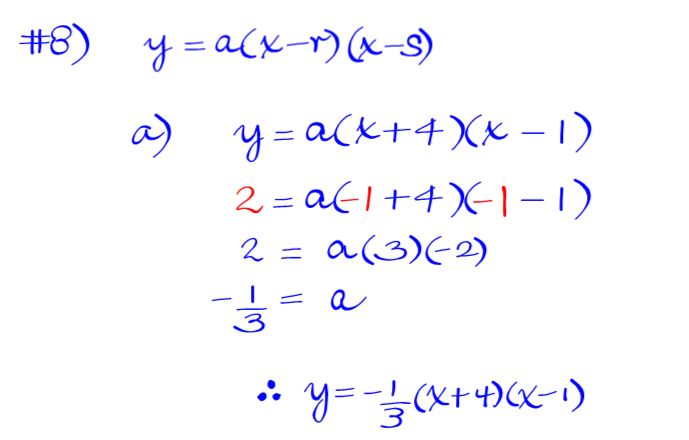 #8) y = a(x-r)(x-s)
a) y = a(x+4)(x-1)
2 = a(-1+4)(-1-1)
2 = a(3)(-2)
-1/3 = a
∴ y = -1/3(x+4)(x-1)